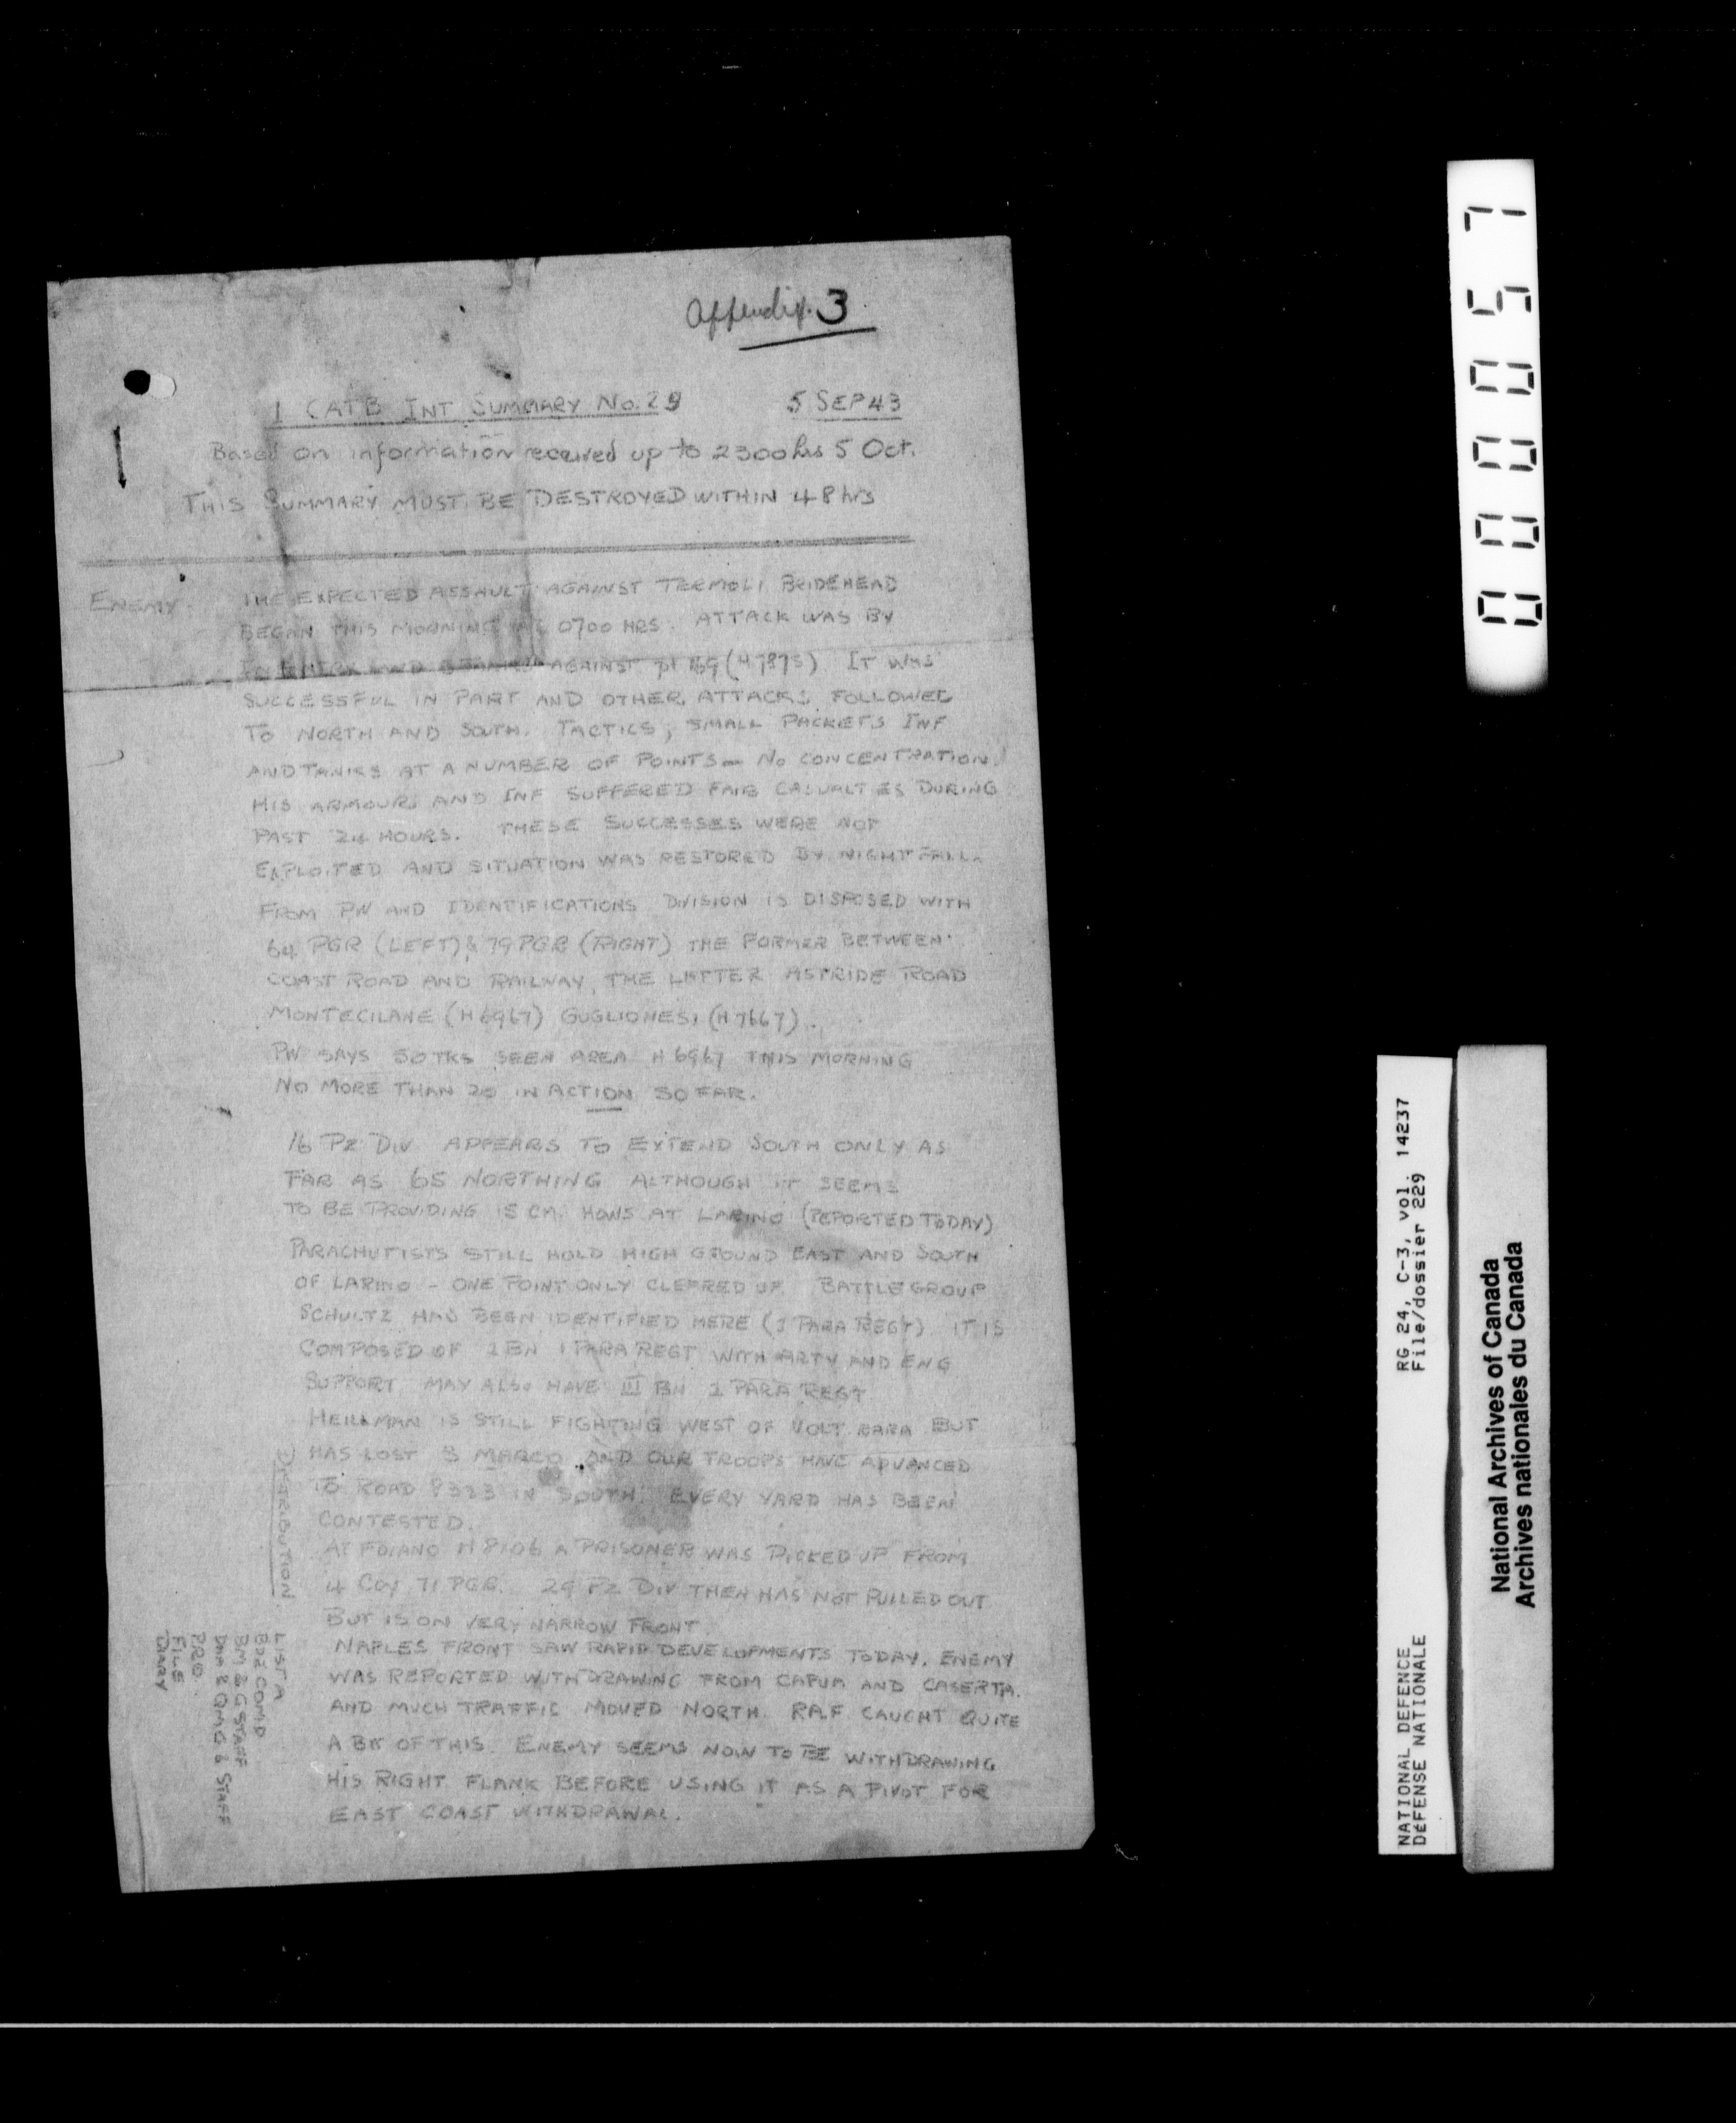 Appendix 3
1 CATB INT SUMMARY No. 29 5 SEP 43
Based on information received up to 2300 hrs 5 Oct.
THIS SUMMARY MUST BE DESTROYED WITHIN 48 hrs
ENEMY. THE EXPECTED ASSAULT AGAINST TERMOLI BRIDEHEAD
BEGAN THIS MORNING AT 0700 HRS. ATTACK WAS BY
AGAINST pt 169 (H7875) IT WAS
SUCCESSFUL IN PART AND OTHER ATTACKS FOLLOWED
TO NORTH AND SOUTH. TACTICS, SMALL PACKETS INF
AND TANKS AT A NUMBER OF POINTS - NO CONCENTRATION.
HIS ARMOUR AND INF SUFFERED FAIR CASUALTIES DURING
PAST 24 HOURS. THESE SUCCESSES WERE NOT
EXPLOITED AND SITUATION WAS RESTORED BY NIGHTFALL.
FROM PW AND IDENTIFICATIONS DIVISION IS DISPOSED WITH
64 PGR (LEFT) & 79 PGR (RIGHT) THE FORMER BETWEEN
COAST ROAD AND RAILWAY, THE LATTER ASTRIDE ROAD
MONTECILANE (H6967) GUGLIONESI (H7667).
PW SAYS 50 TKS SEEN AREA H6967 THIS MORNING
NO MORE THAN 20 IN ACTION SO FAR.
16 PZ DIV APPEARS TO EXTEND SOUTH ONLY AS
FAR AS 65 NORTHING ALTHOUGH IT SEEMS
TO BE PROVIDING 15 CM. HOWS AT LARINO (REPORTED TODAY)
PARACHUTISTS STILL HOLD HIGH GROUND EAST AND SOUTH
OF LARINO - ONE POINT ONLY CLEARED UP. BATTLEGROUP
SCHULTZ HAS BEEN IDENTIFIED HERE (1 PARA REGT). IT IS
COMPOSED OF 1 BN 1 PARA REGT WITH ARTY AND ENG
SUPPORT MAY ALSO HAVE III BN 1 PARA REGT
HEILMAN IS STILL FIGHTING WEST OF VOLTURARA BUT
HAS LOST S MARCO AND OUR TROOPS HAVE ADVANCED
TO ROAD IN SOUTH. EVERY YARD HAS BEEN
CONTESTED.
AT FOIANO H8106 A PRISONER WAS PICKED UP FROM
4 COY 71 PGR. 29 PZ DIV THEN HAS NOT PULLED OUT
BUT IS ON VERY NARROW FRONT.
NAPLES FRONT SAW RAPID DEVELOPMENTS TODAY. ENEMY
WAS REPORTED WITHDRAWING FROM CAPUA AND CASERTA.
AND MUCH TRAFFIC MOVED NORTH. RAF CAUGHT QUITE
A BIT OF THIS. ENEMY SEEMS NOW TO BE WITHDRAWING
HIS RIGHT FLANK BEFORE USING IT AS A PIVOT FOR
EAST COAST WITHDRAWAL.
DISTRIBUTION
LIST A
BDE COMD
BM & G STAFF
DAA & QMG & STAFF
PRO
FILE
DIARY
000057
RG 24, C-3, vol. 14237
File/dossier 229
NATIONAL DEFENCE
DÉFENSE NATIONALE
National Archives of Canada
Archives nationales du Canada